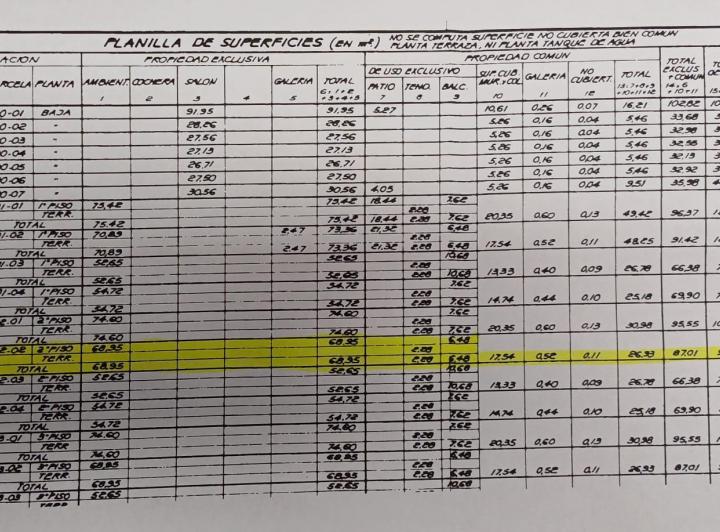 PLANILLA DE SUPERFICIES (EN m²) NO SE COMPUTA SUPERFICIE NO CUBIERTA BIEN COMUN
PLANTA TERRAZA, NI PLANTA TANQUE DE AGUA
ACION PROPIEDAD EXCLUSIVA PROPIEDAD COMUN TOTAL
RCELA PLANTA AMBIENT. COCHERA SALON GALERIA TOTAL DE USO EXCLUSIVO SUP.CUB. GALERIA NO TOTAL EXCLUS
PATIO TEND. BALC. MUR.+COL. CUBIERT. + COMUN
1 2 3 4 5 7 8 9 10 11 12
0-01 BAJA 91,95 91,95 5,27 10,61 0,26 0,07 16,21 102,82
0-02 " 28,26 28,26 5,26 0,16 0,04 5,46 33,68
0-03 " 27,56 27,56 5,26 0,16 0,04 5,46 32,98
0-04 " 27,13 27,13 5,26 0,16 0,04 5,46
0-05 " 26,71 26,71 5,26 0,16 0,04 5,46 32,13
0-06 " 27,50 27,50 5,26 0,16 0,04 5,46 32,92
0-07 " 30,56 30,56 4,05 5,26 0,16 0,04 9,51 35,98
1-01 1º PISO 75,42 75,42 18,44 7,62
TERR. 2,28
TOTAL 75,42 75,42 18,44 2,28 7,62 20,35 0,60 0,13 49,42 96,37
1-02 1º PISO 70,89 2,47 73,36 21,32 6,48
TERR. 2,28
TOTAL 70,89 2,47 73,36 21,32 2,28 6,48 17,54 0,52 0,11 48,25 91,42
1-03 1º PISO 52,65 52,65 10,68
TERR. 2,28
TOTAL 52,65 52,65 2,28 10,68 13,33 0,40 0,09 26,78 66,38
1-04 1º PISO 54,72 54,72 7,62
TERR. 2,28
TOTAL 54,72 54,72 2,28 7,62 14,74 0,44 0,10 25,18 69,90
2-01 2º PISO 74,60 74,60 7,62
TERR. 2,28
TOTAL 74,60 74,60 2,28 7,62 20,35 0,60 0,13 30,98 95,55
2-02 2º PISO 68,95 68,95 6,48
TERR. 2,28
TOTAL 68,95 68,95 2,28 6,48 17,54 0,52 0,11 26,93 87,01
2-03 2º PISO 52,65 52,65 10,68
TERR. 2,28
TOTAL 52,65 52,65 2,28 10,68 13,33 0,40 0,09 26,78 66,38
2-04 2º PISO 54,72 54,72 7,62
TERR. 2,28
TOTAL 54,72 54,72 2,28 7,62 14,74 0,44 0,10 25,18 69,90
3-01 3º PISO 74,60 74,60 7,62
TERR. 2,28
TOTAL 74,60 74,60 2,28 7,62 20,35 0,60 0,13 30,98 95,55
3-02 3º PISO 68,95 68,95 6,48
TERR. 2,28
TOTAL 68,95 68,95 2,28 6,48 17,54 0,52 0,11 26,93 87,01
3-03 3º PISO 52,65 52,65 10,68